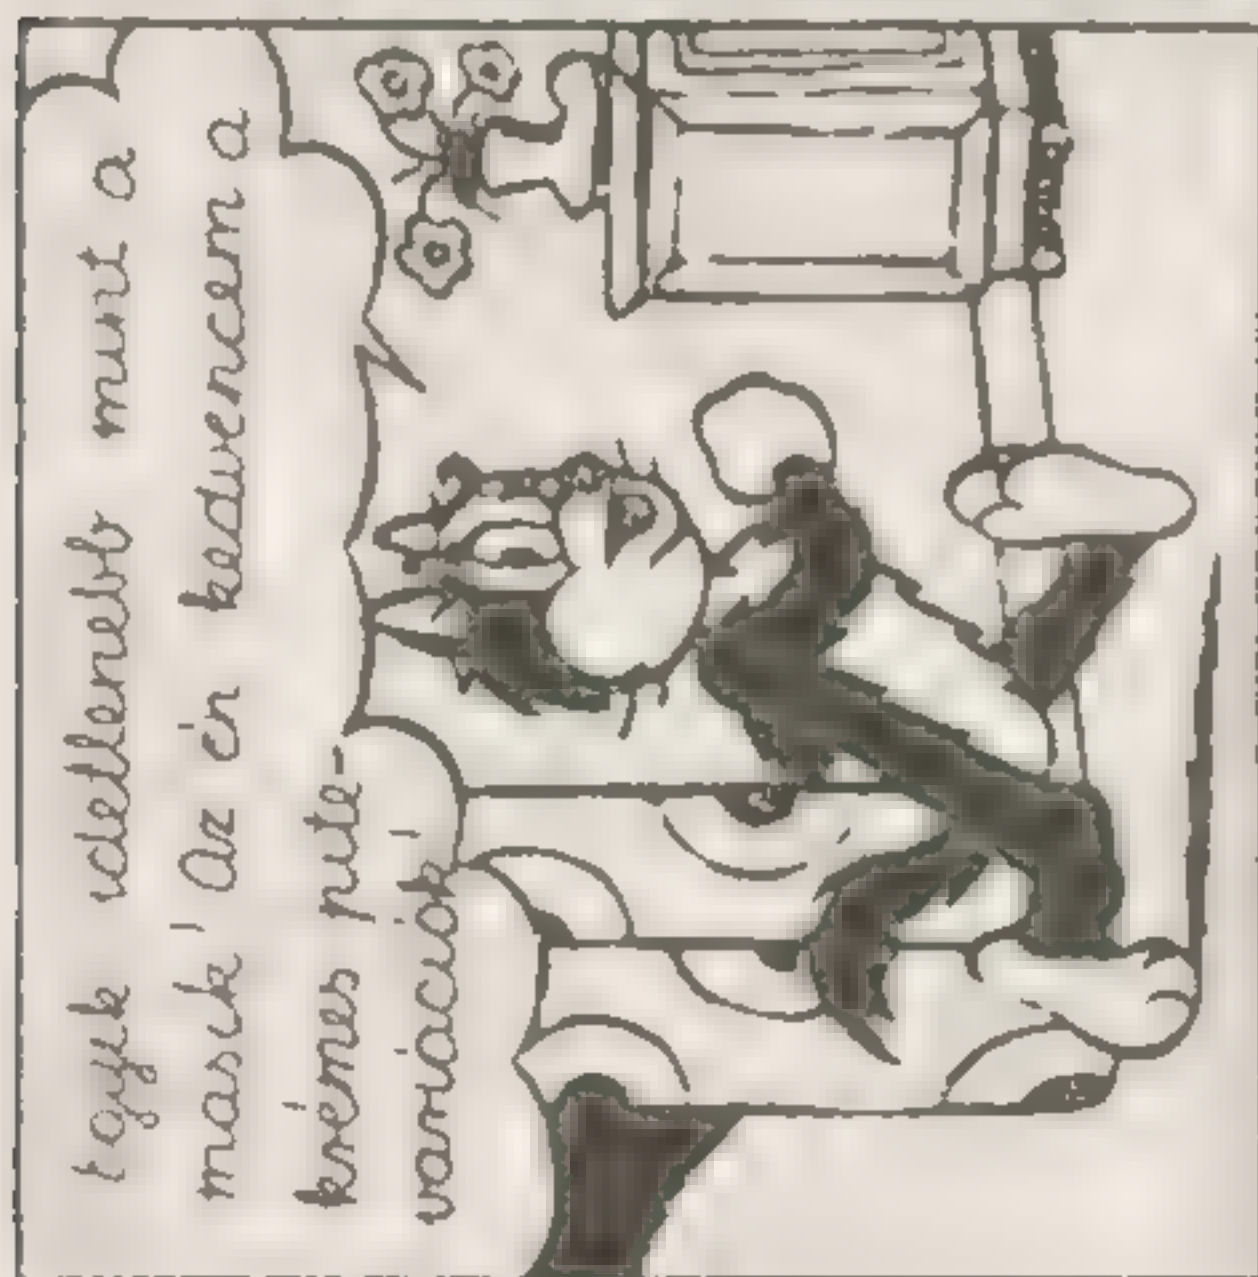 egyik idétlenebb mint a
másik! Az én kedvencem a
krémes pite-
variációk!